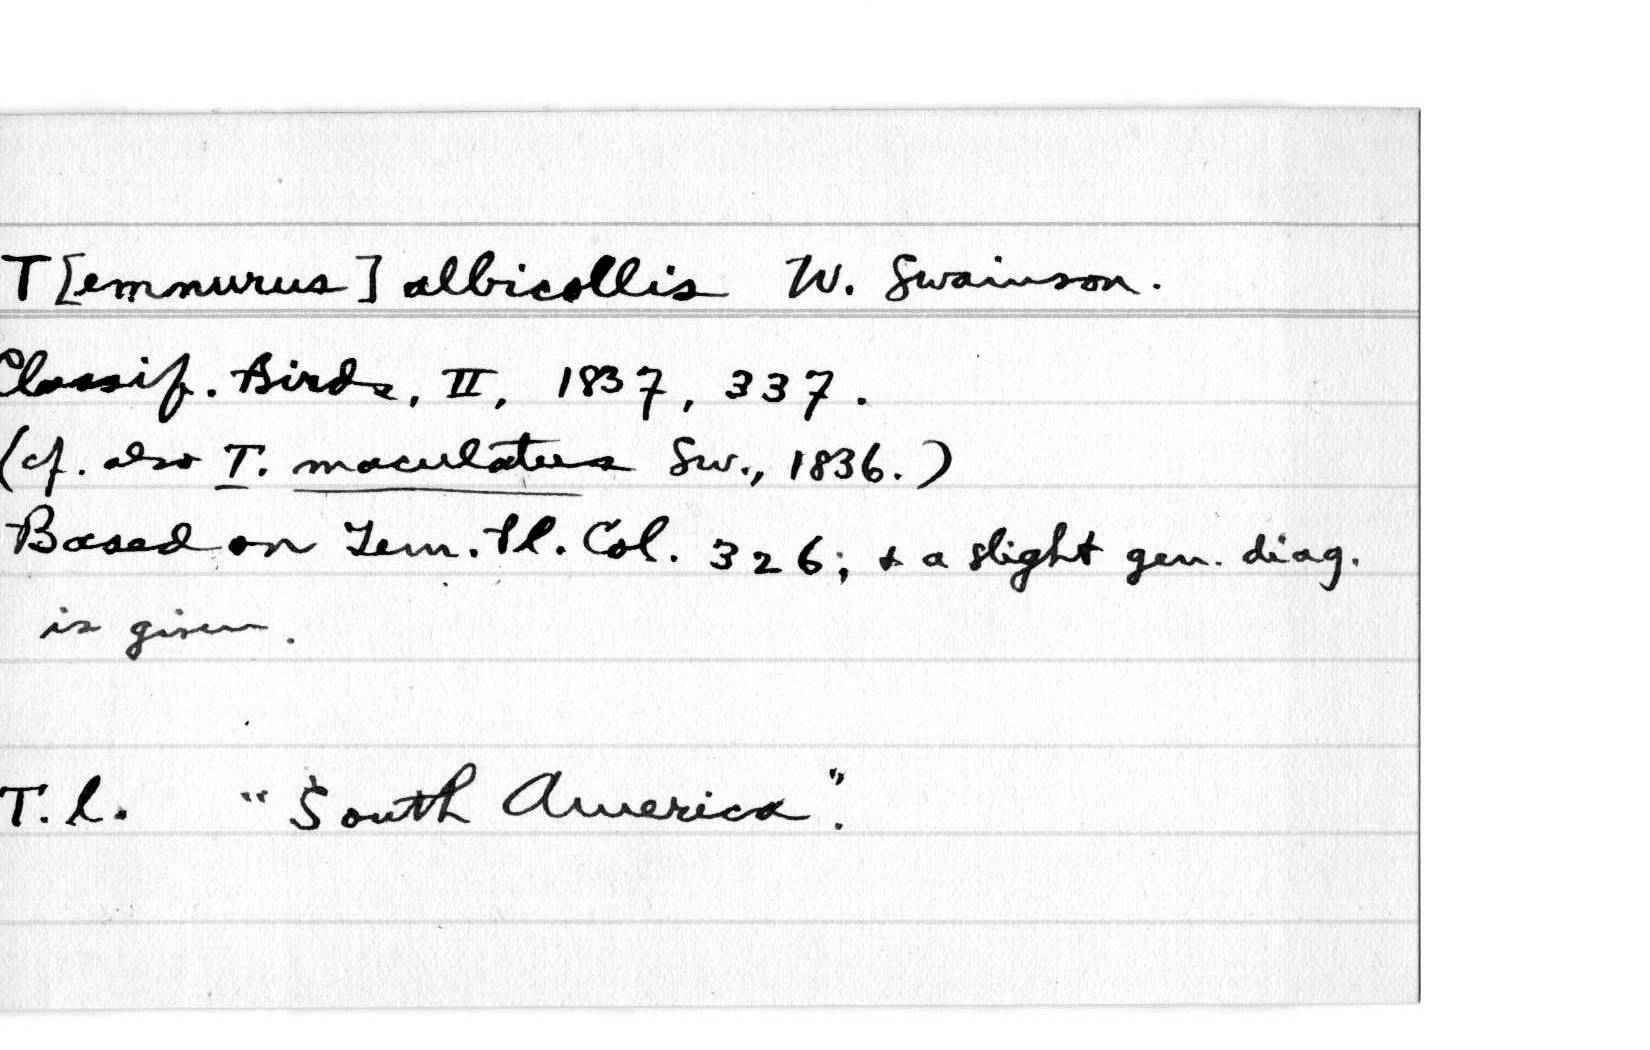 T[emnurus] albicollis W. Swainson.
Classif. Birds, II, 1837, 337.
(cf. also T. maculatus Sw., 1836.)
Based on Tem. Pl. Col. 326; & a slight gen. diag.
is given.
T.l. "South America".